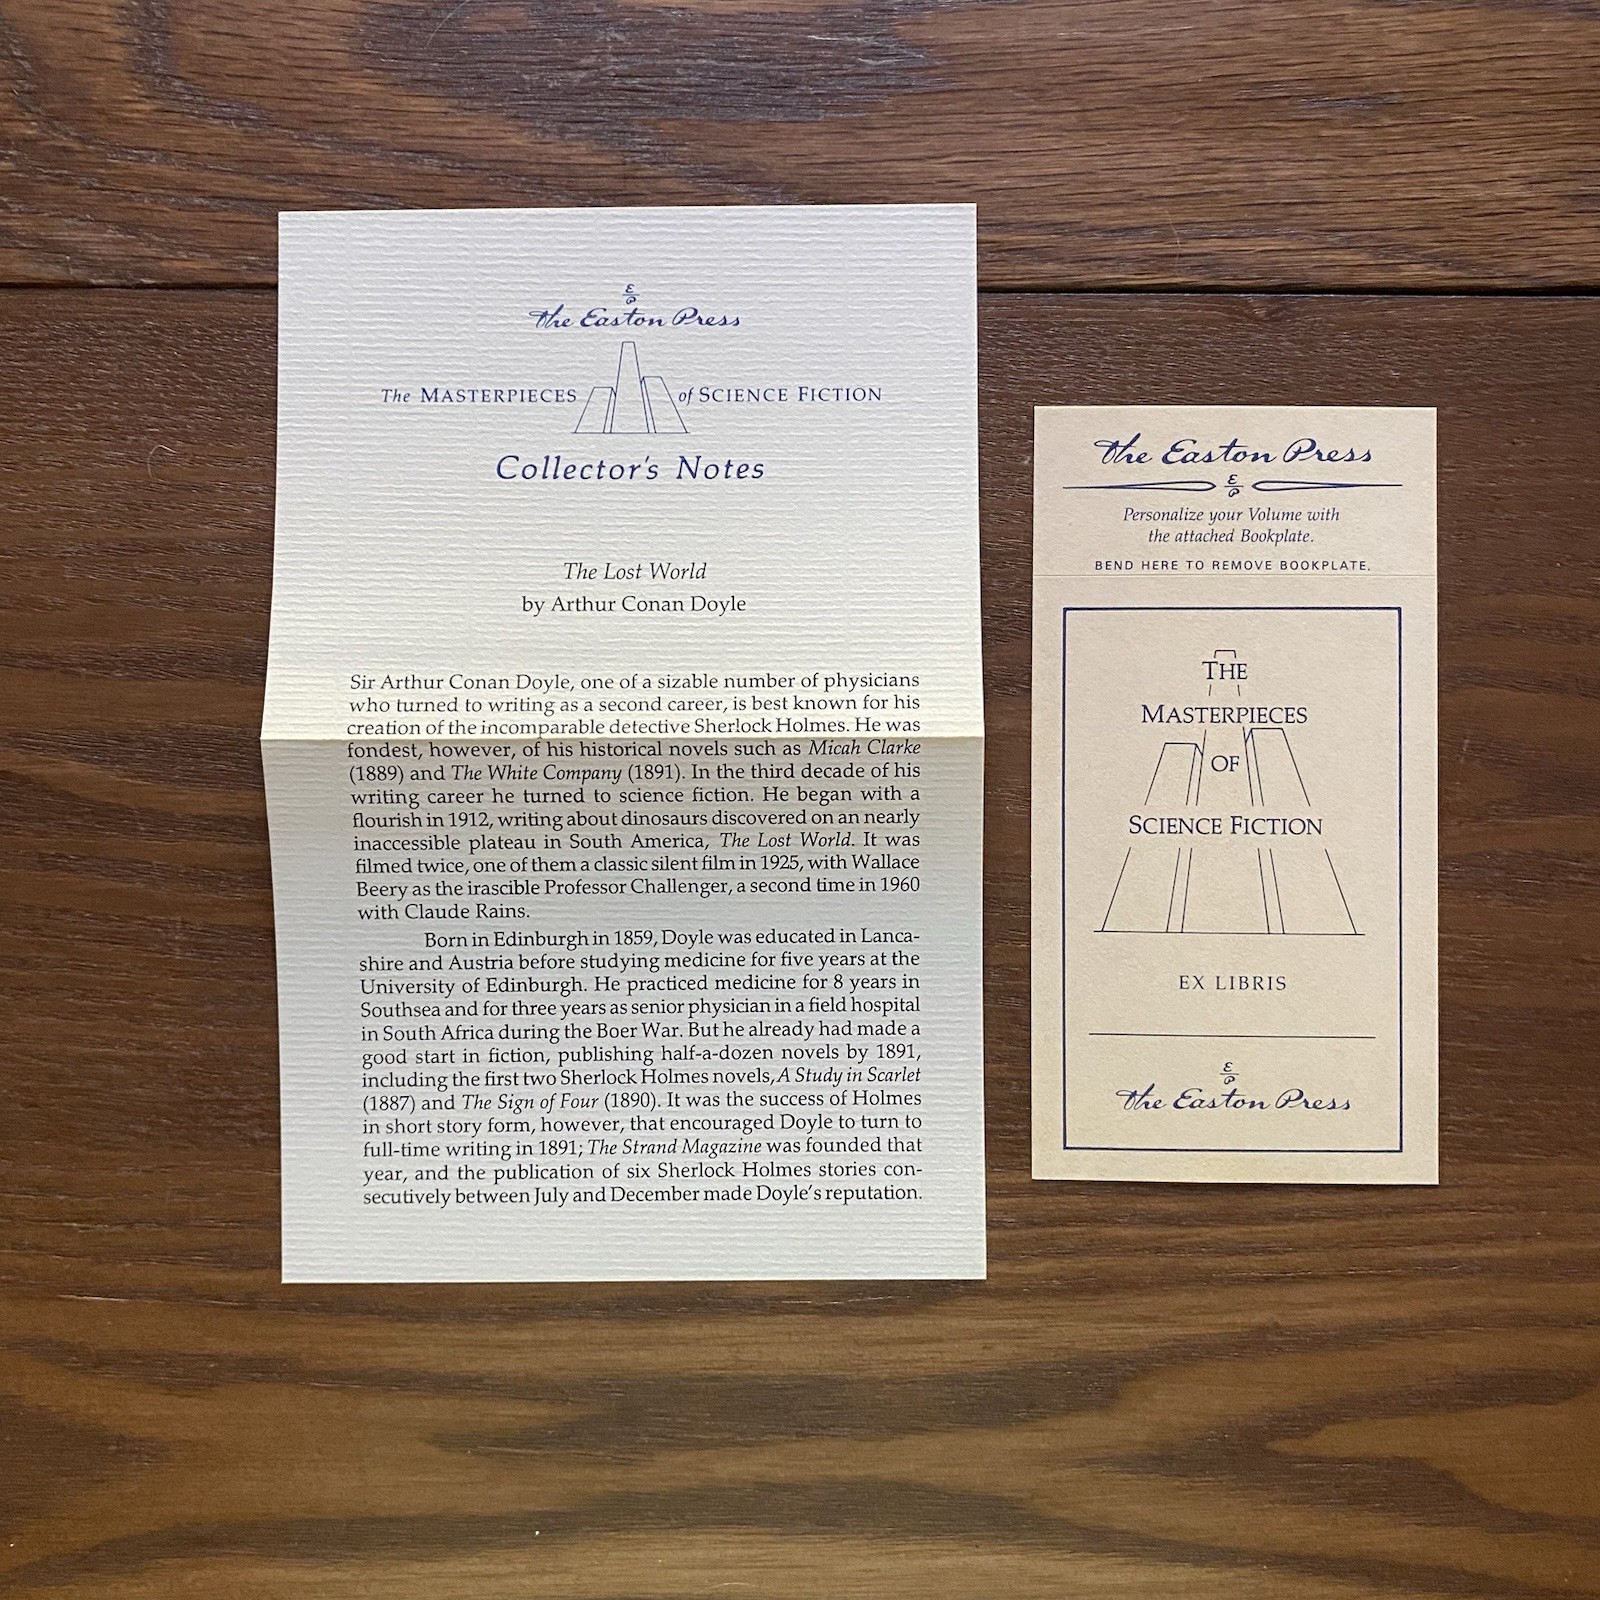 The Easton Press
The MASTERPIECES of SCIENCE FICTION
Collector's Notes
The Lost World
by Arthur Conan Doyle
Sir Arthur Conan Doyle, one of a sizable number of physicians
who turned to writing as a second career, is best known for his
creation of the incomparable detective Sherlock Holmes. He was
fondest, however, of his historical novels such as Micah Clarke
(1889) and The White Company (1891). In the third decade of his
writing career he turned to science fiction. He began with a
flourish in 1912, writing about dinosaurs discovered on an nearly
inaccessible plateau in South America, The Lost World. It was
filmed twice, one of them a classic silent film in 1925, with Wallace
Beery as the irascible Professor Challenger, a second time in 1960
with Claude Rains.
Born in Edinburgh in 1859, Doyle was educated in Lanca-
shire and Austria before studying medicine for five years at the
University of Edinburgh. He practiced medicine for 8 years in
Southsea and for three years as senior physician in a field hospital
in South Africa during the Boer War. But he already had made a
good start in fiction, publishing half-a-dozen novels by 1891,
including the first two Sherlock Holmes novels, A Study in Scarlet
(1887) and The Sign of Four (1890). It was the success of Holmes
in short story form, however, that encouraged Doyle to turn to
full-time writing in 1891; The Strand Magazine was founded that
year, and the publication of six Sherlock Holmes stories con-
secutively between July and December made Doyle's reputation.
The Easton Press
Personalize your Volume with
the attached Bookplate.
BEND HERE TO REMOVE BOOKPLATE.
THE
MASTERPIECES
OF
SCIENCE FICTION
EX LIBRIS
The Easton Press